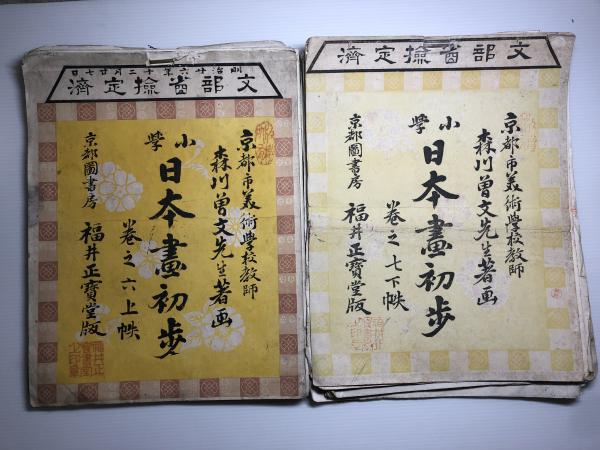 明治廿六年十二月廿七日
文部省撿定濟
京都市美術學校教師
森川曽文先生著画
小學
日本畫初步
卷之六上帙
京都圖書房
福井正寶堂版
文部省撿定濟
京都市美術學校教師
森川曽文先生著画
小學
日本畫初步
卷之七下帙
京都圖書房
福井正寶堂版